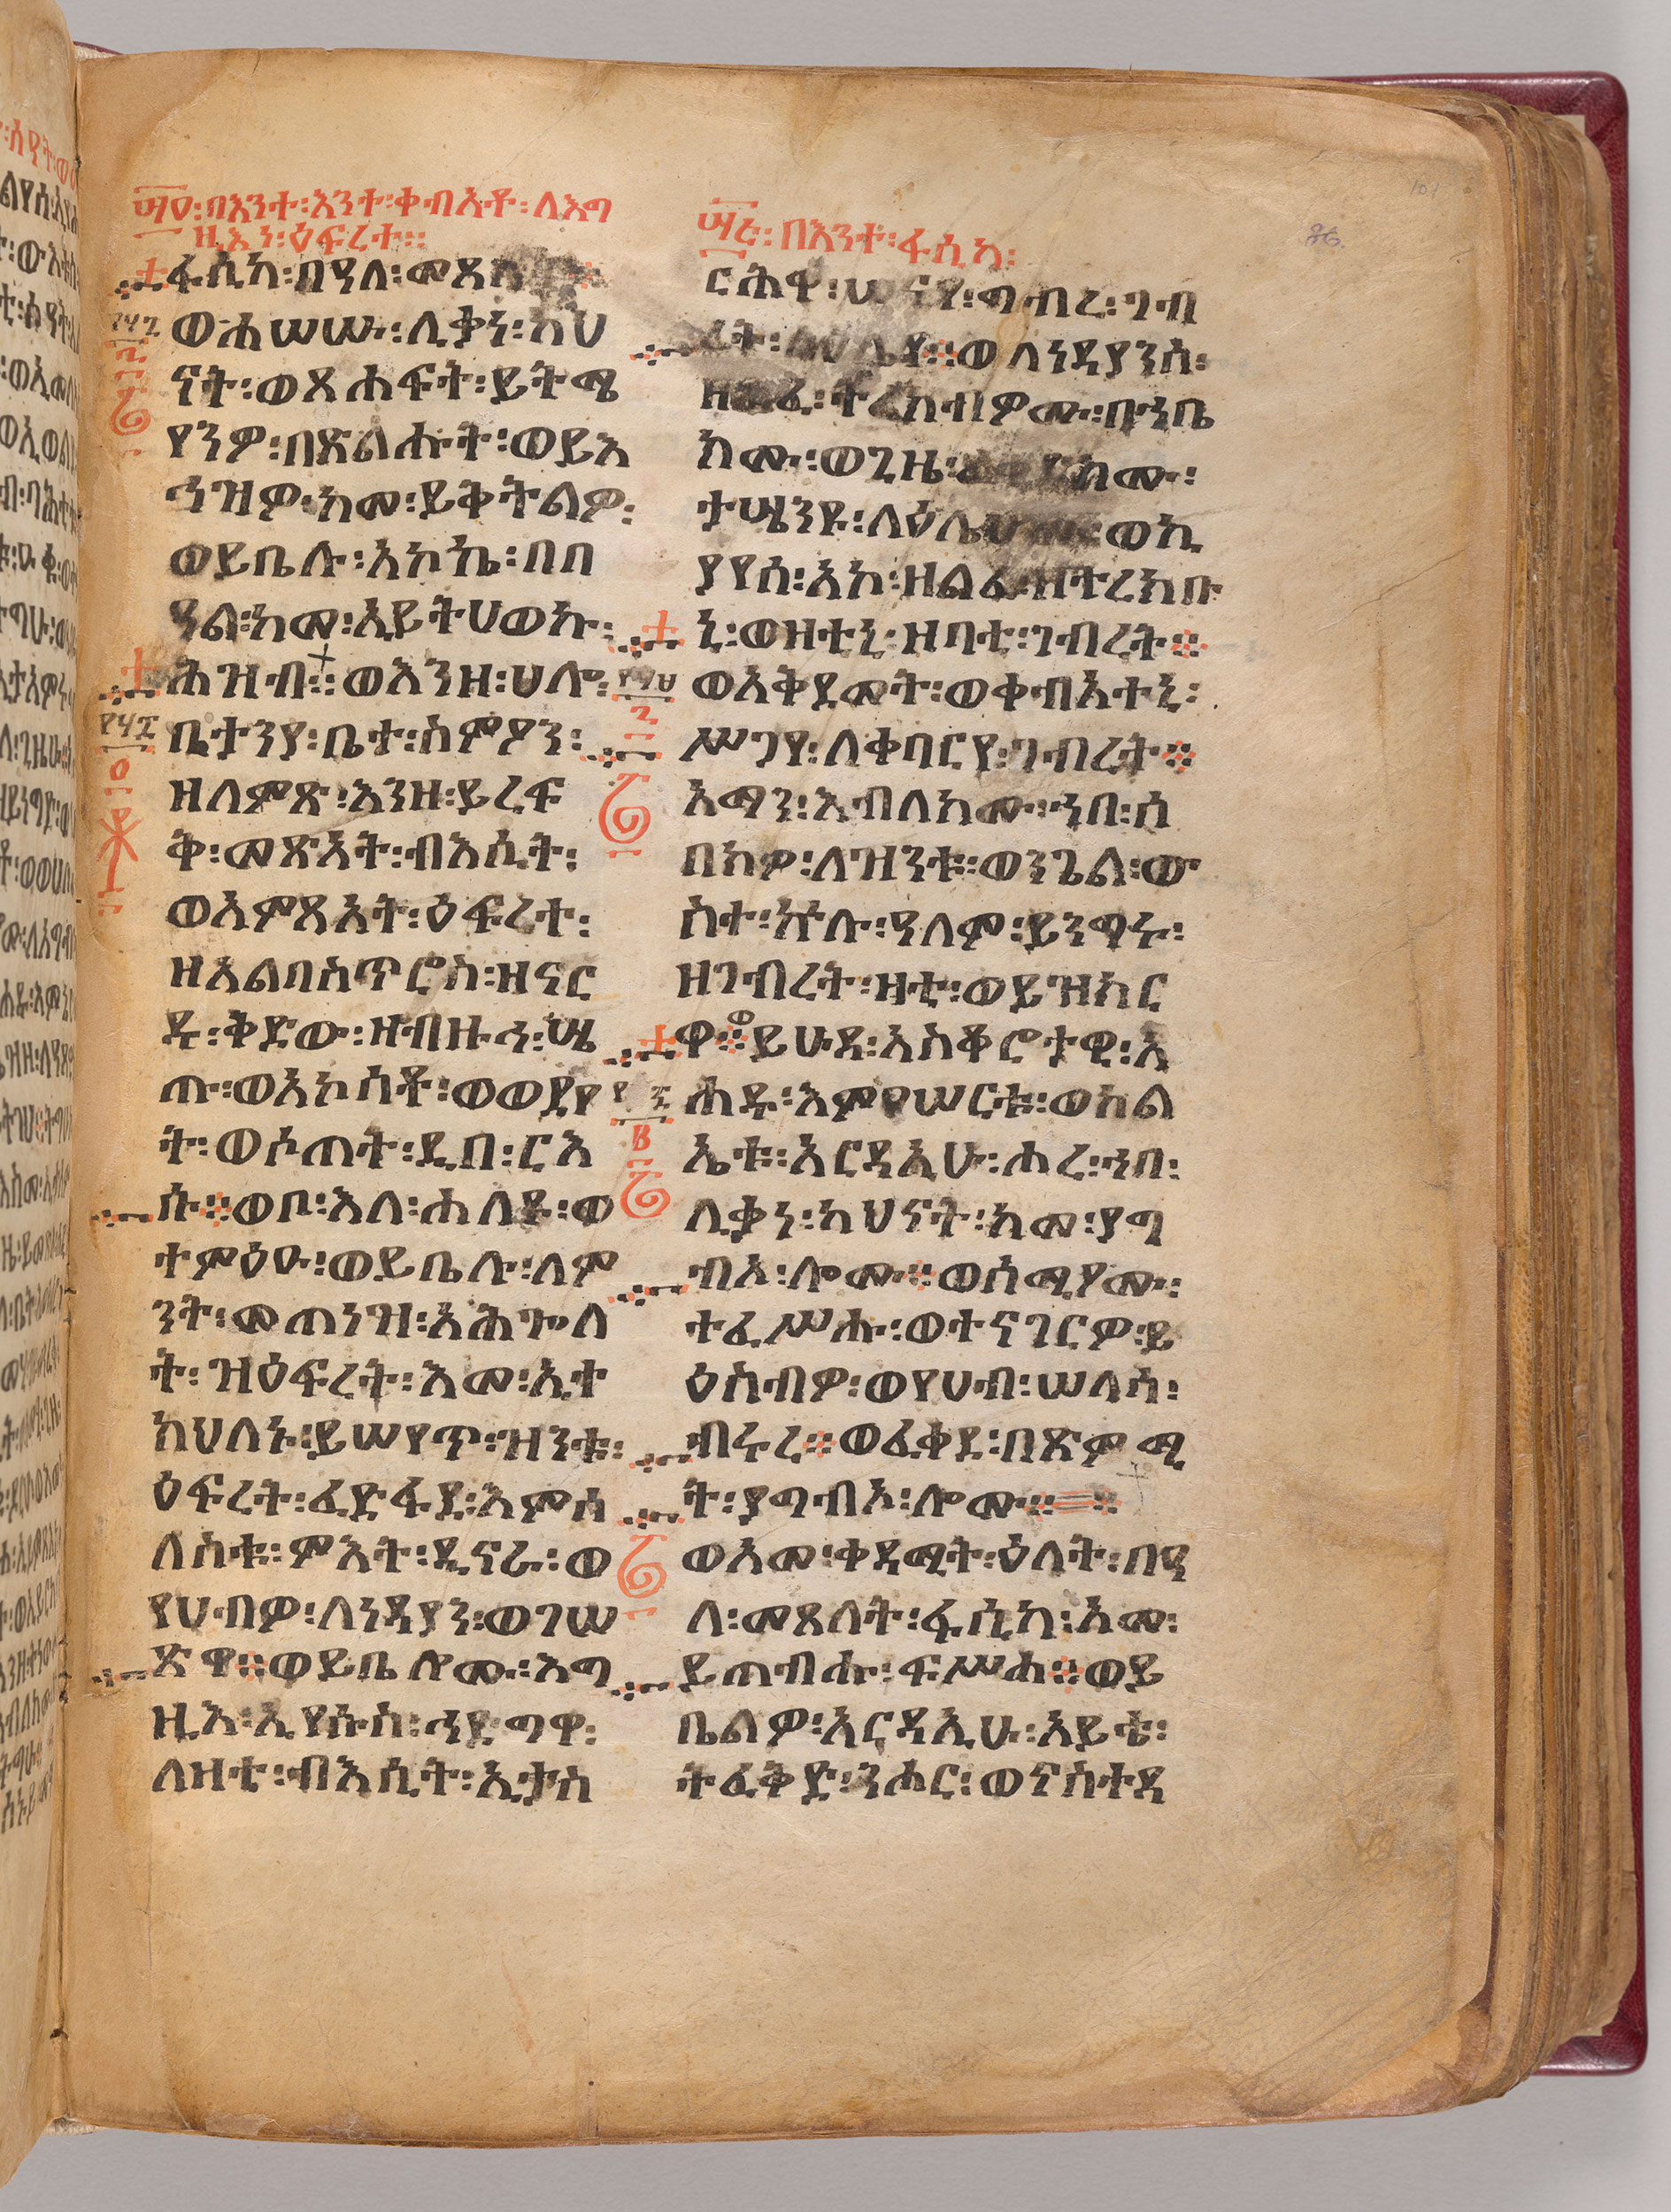 ፵፬፡በእንተ፡እንተ፡ቀብአቶ፡ለእግ
ዚእነ፡ዕፍረተ።
ፋሲካ፡በዓለ፡
ወሐሠሡ፡ሊቃነ፡ካህ
ናት፡ወጸሐፍት፡ይትሜ
የንዎ፡በጽልሑት፡ወይእ
ኅዝዎ፡ከመ፡ይቅትልዎ፡
ወይቤሉ፡አኮኬ፡በበ
ዓል፡ከመ፡ኢይትሀወኩ፡
ሕዝብ።ወእንዘ፡ሀሎ፡
ቢታንያ፡ቤተ፡ስምዖን፡
ዘለምጽ፡እንዘ፡ይረፍ
ቅ፡መጽአት፡ብእሲት፡
ወአምጽአት፡ዕፍረተ፡
ዘአልባስጥሮስ፡ዘናር
ዱ፡ቅድው፡ዘብዙኅ፡ሤ
ጡ፡ወአኮሰቶ፡ወወደየ
ት፡ወሶጠት፡ዲበ፡ርእ
ሱ።ወቦ፡እለ፡ሐለዩ፡ወ
ተምዕዑ፡ወይቤሉ፡ለም
ንት፡መጠነዝ፡አሕጐለ
ት፡ዝዕፍረት፡እመ፡ኢተ
ክህለኑ፡ይሠየጥ፡ዝንቱ፡
ዕፍረት፡ፈድፋደ፡እምሰ
ለስቱ፡ምእት፡ዲናራ፡ወ
የሀብዎ፡ለነዳያን፡ወገሠ
ጽዋ።ወይቤሎሙ፡እግ
ዚእ፡ኢየሱስ፡ኅድግዋ፡
ለዛቲ፡ብእሲት፡ኢታስ
በእንተ፡ፋሲካ፡
ርሕዋ፡ሠናየ፡ግብረ፡ገብ
ረት፡ወለነዳያንሰ፡
ትረክብዎሙ፡በኀቤ
ክሙ፡ወጊዜ፡
ታሤንዩ፡ወኪ
ያየሰ፡አኮ፡ዘልፈ፡ዘትረክቡ
ኒ፡ወዛቲኒ፡ዝባቲ፡ገብረት።
ወአቅደመት፡ወቀብአተኒ፡
ሥጋየ፡ለቀባርየ፡ገብረት።
አማን፡እብለክሙ፡ኀበ፡ሰ
በክዎ፡ለዝንቱ፡ወንጌል፡ው
ስተ፡ኵሉ፡ዓለም፡ይነግሩ፡
ዘገብረት፡ዛቲ፡ወይዝክር
ዋ።ይሁዳ፡አስቆሮታዊ፡አ
ሐዱ፡እምዐሠርቱ፡ወክል
ኤቱ፡አርዳኢሁ፡ሐረ፡ኀበ፡
ሊቃነ፡ካህናት፡ከመ፡ያግ
ብእ፡ሎሙ።ወሰሚዖሙ፡
ተፈሥሑ፡ወተናገርዎ፡ይ
ዕስብዎ፡ወየሀብ፡ሠላሳ፡
ብሩረ።ወፈቀደ፡በጽምሚ
ት፡ያግብእ፡ሎሙ።
ወአመ፡ቀዳሚት፡ዕለት፡በዓ
ለ፡መጸለት፡ፋሲካ፡አመ፡
ይጠብሑ፡ፍሥሐ።ወይ
ቤልዎ፡አርዳኢሁ፡አይቴ፡
ትፈቅድ፡ንሐር፡ወናስተዳ